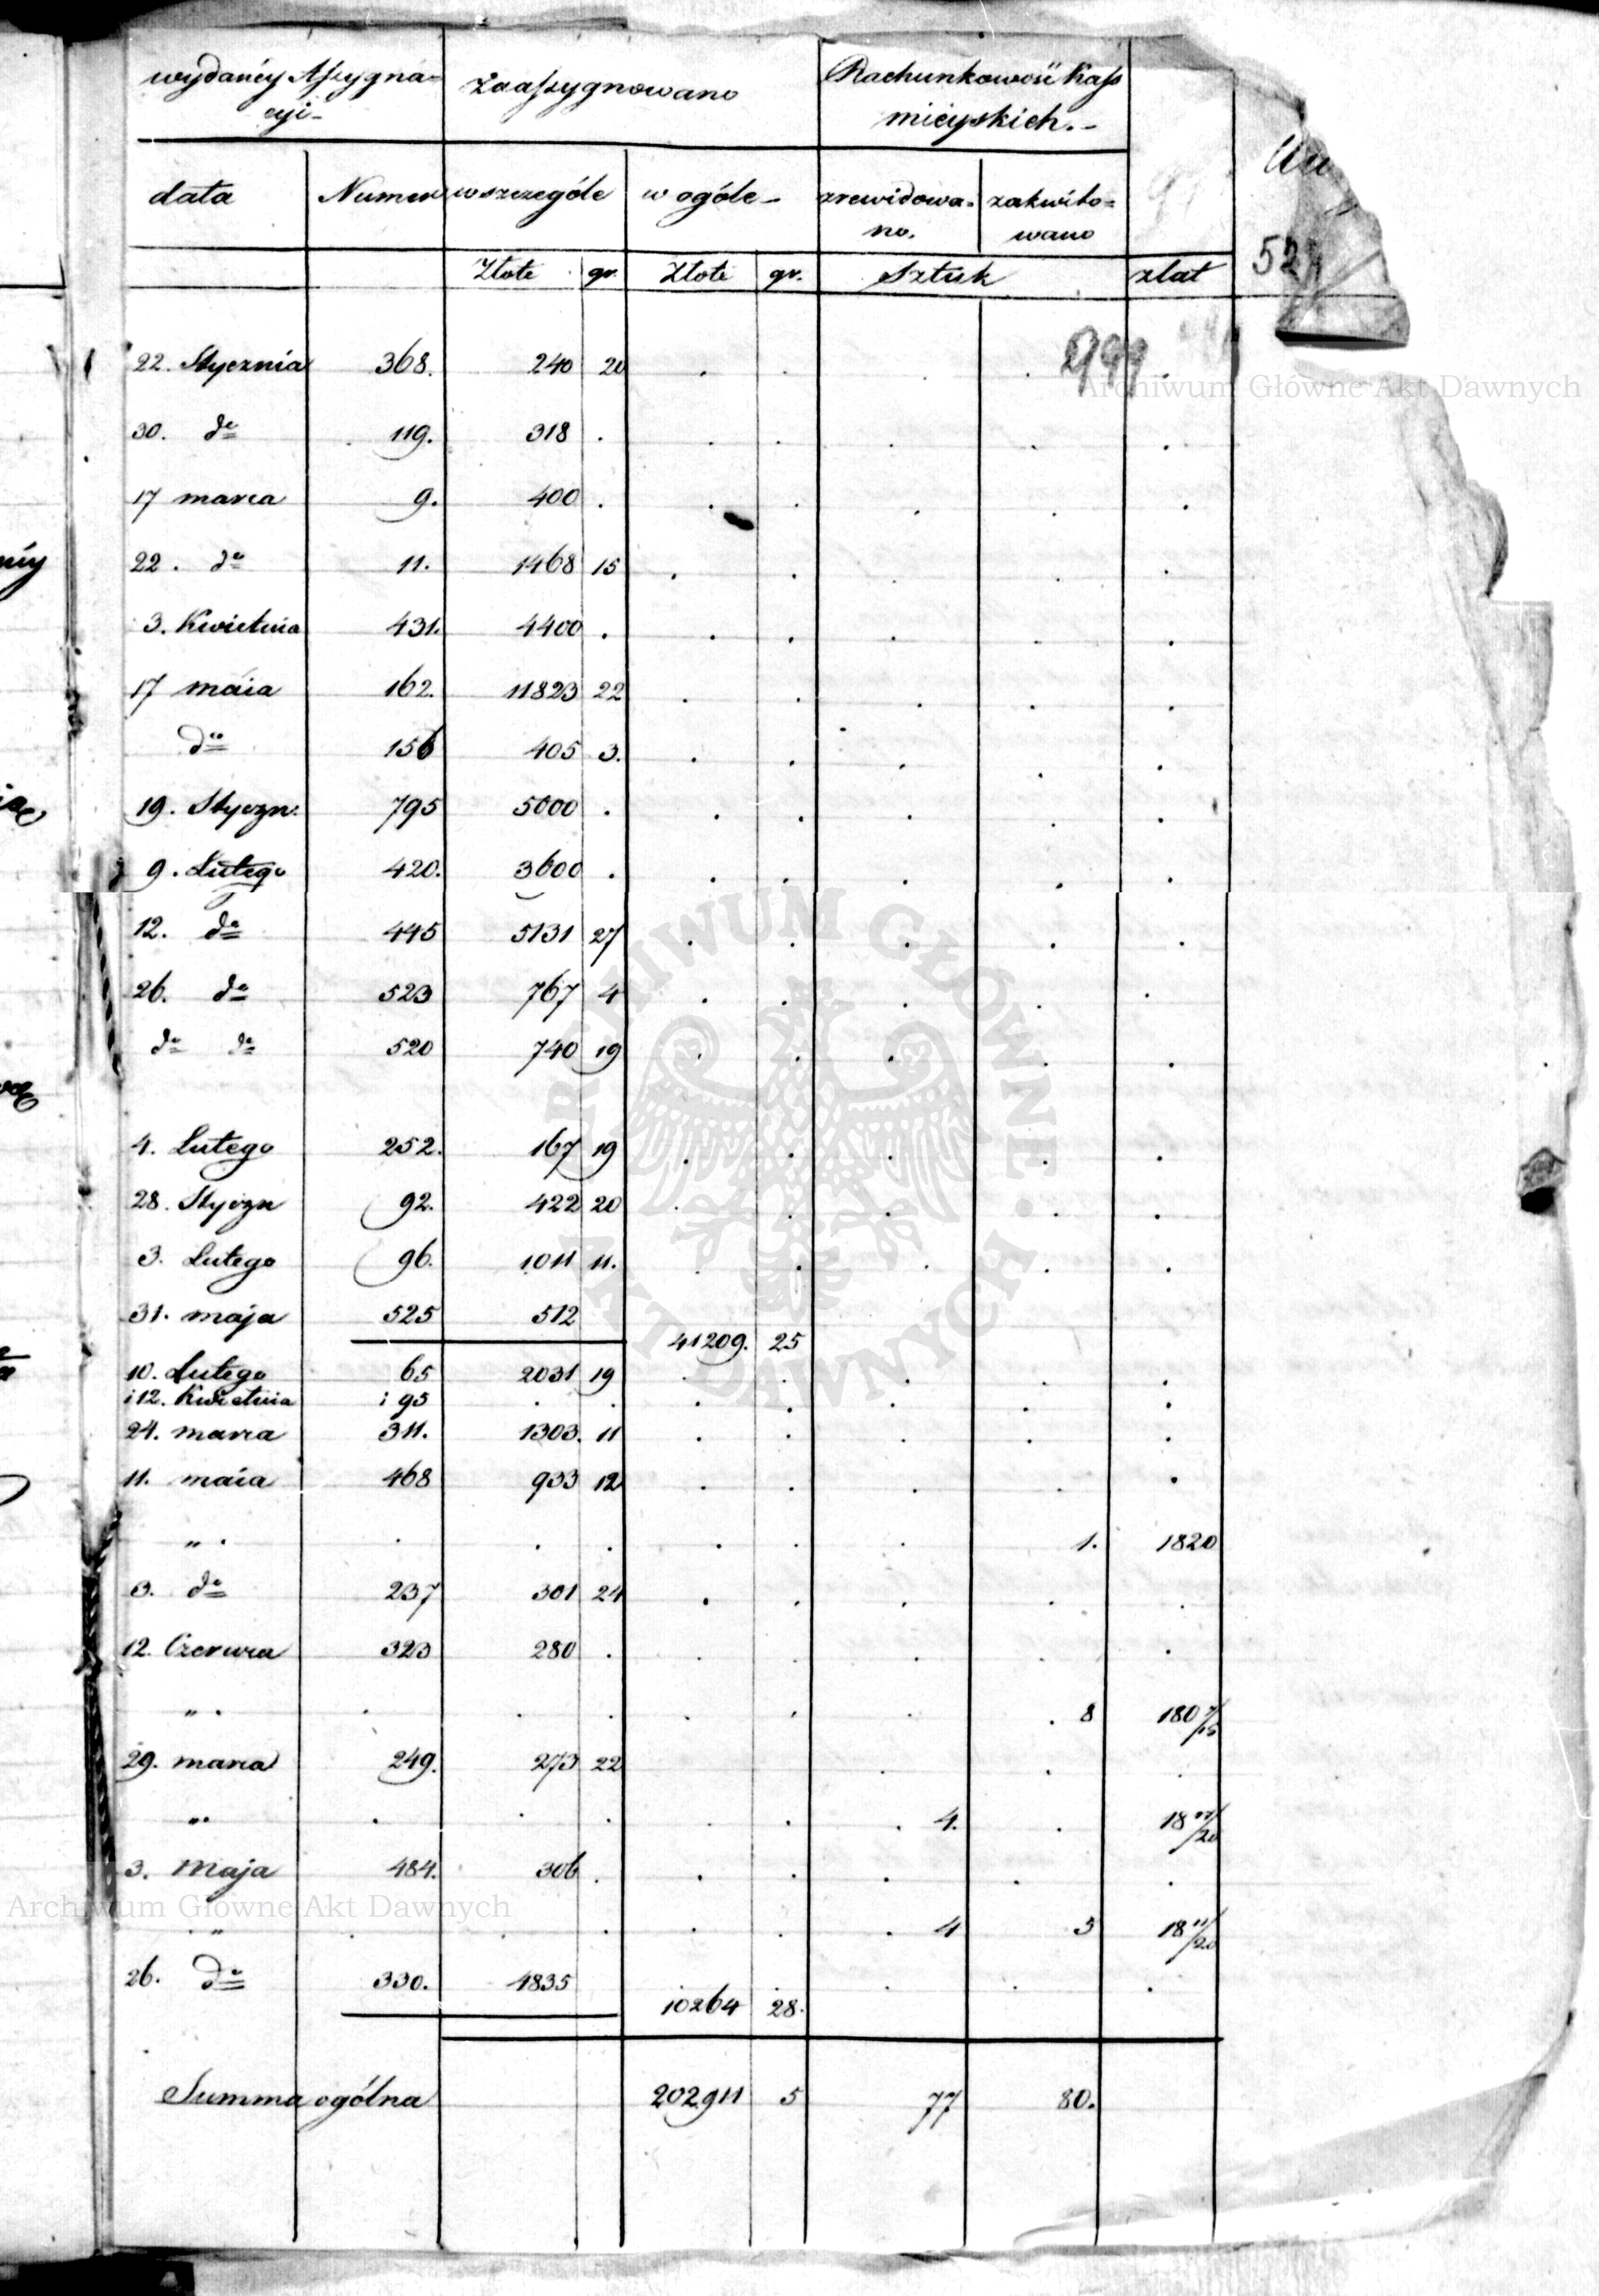 wydanéy Assygna=
cyi-
Zaassygnowano
Rachunkowość Kass
mieyskich.-
data Numer w szczególe w ogóle- zrewidowa= zakwito=
no. wano
Złote gr. Złote gr. Sztuk zlat
52
999
22. Stycznia 368. 240 20
30. do 119. 318
17 marca 9. 400
22. do 11. 1468 15
3. Kwietnia 431. 4400
17 maia 162. 11823 22
do 156 405 3.
19. Styczn. 795 5000
9. Lutego 420. 3600
12. do 445 5131 27
26. do 523 767 4
do do 520 740 19
4. Lutego 252. 167 19
28. Styczn 92. 422 20
3. Lutego 96. 1011 11.
31. maja 525 512
41209. 25
10. Lutego 65 2031 19
i 12. Kwietnia i 95
24. marca 311. 1303. 11
11. maia 468 933 12
" 1. 1820
3. do 237 301 24
12. Czerwca 323 280
" 8 180
29. marca 249. 273 22
" 4. 18 /20
3. Maja 484. 306
" 4 5 18 11/20
26. do 330. 4835
10264 28.
Summa ogólna 202911 5 77 80.
Archiwum Główne Akt Dawnych
Archiwum Główne Akt Dawnych
ARCHIWUM GŁÓWNE AKT DAWNYCH